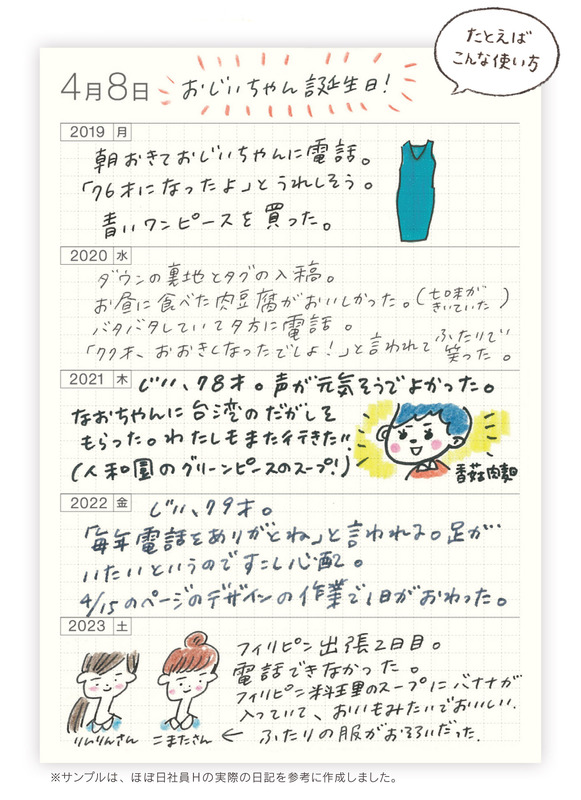 たとえば
こんな使い方
4月8日 おじいちゃん誕生日!
2019 月
朝おきておじいちゃんに電話。
「76才になったよ」とうれしそう。
青いワンピースを買った。
2020 水
ダウンの裏地とタグの入稿。
お昼に食べた肉豆腐がおいしかった。(七味がきいていた)
バタバタしていて夕方に電話。
「77才、おおきくなったでしょ!」と言われてふたりで笑った。
2021 木
じい、78才。声が元気そうでよかった。
なおちゃんに台湾のだがしを
もらった。わたしもまた行きたい!!
(人和園のグリーンピースのスープ!)
香菇肉麵
2022 金
じい、79才。
「毎年電話をありがとね」と言われる。足が…
いたいというのですこし心配。
4/15のページのデザインの作業で1日がおわった。
2023 土
フィリピン出張2日目。
電話できなかった。
フィリピン料理のスープにバナナが
入っていて、おいもみたいでおいしい。
りんりんさん こまたさん ← ふたりの服がおそろいだった。
※サンプルは、ほぼ日社員Hの実際の日記を参考に作成しました。